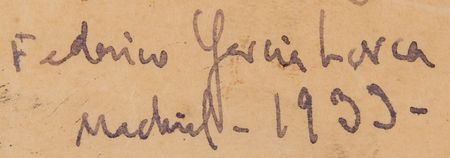 Federico García Lorca
Madrid - 1933 -